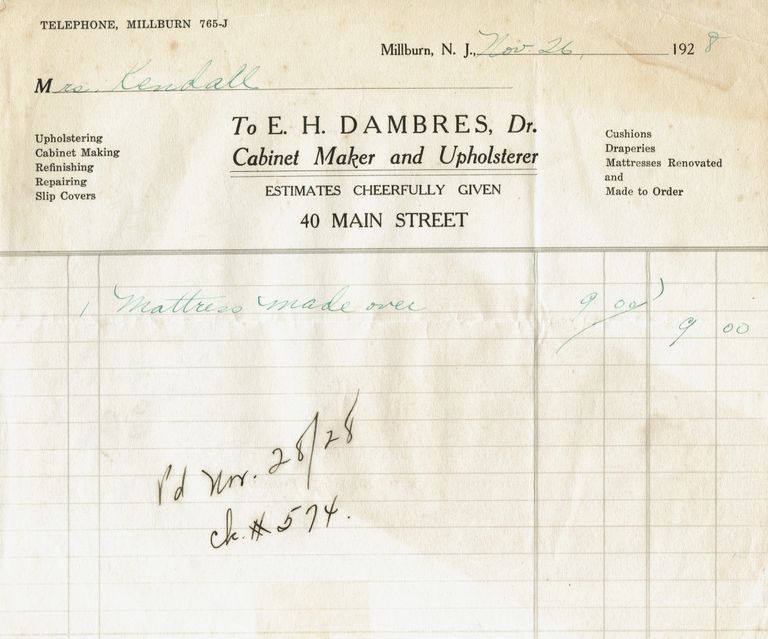 TELEPHONE, MILLBURN 765-J
Millburn, N. J., Nov. 26, 1928
Mrs. Kendall
To E. H. DAMBRES, Dr.
Cabinet Maker and Upholsterer
ESTIMATES CHEERFULLY GIVEN
40 MAIN STREET
Upholstering
Cabinet Making
Refinishing
Repairing
Slip Covers
Cushions
Draperies
Mattresses Renovated
and
Made to Order
1 Mattress made over 9 00
9 00
P'd Nov. 28/28
ck. # 574.